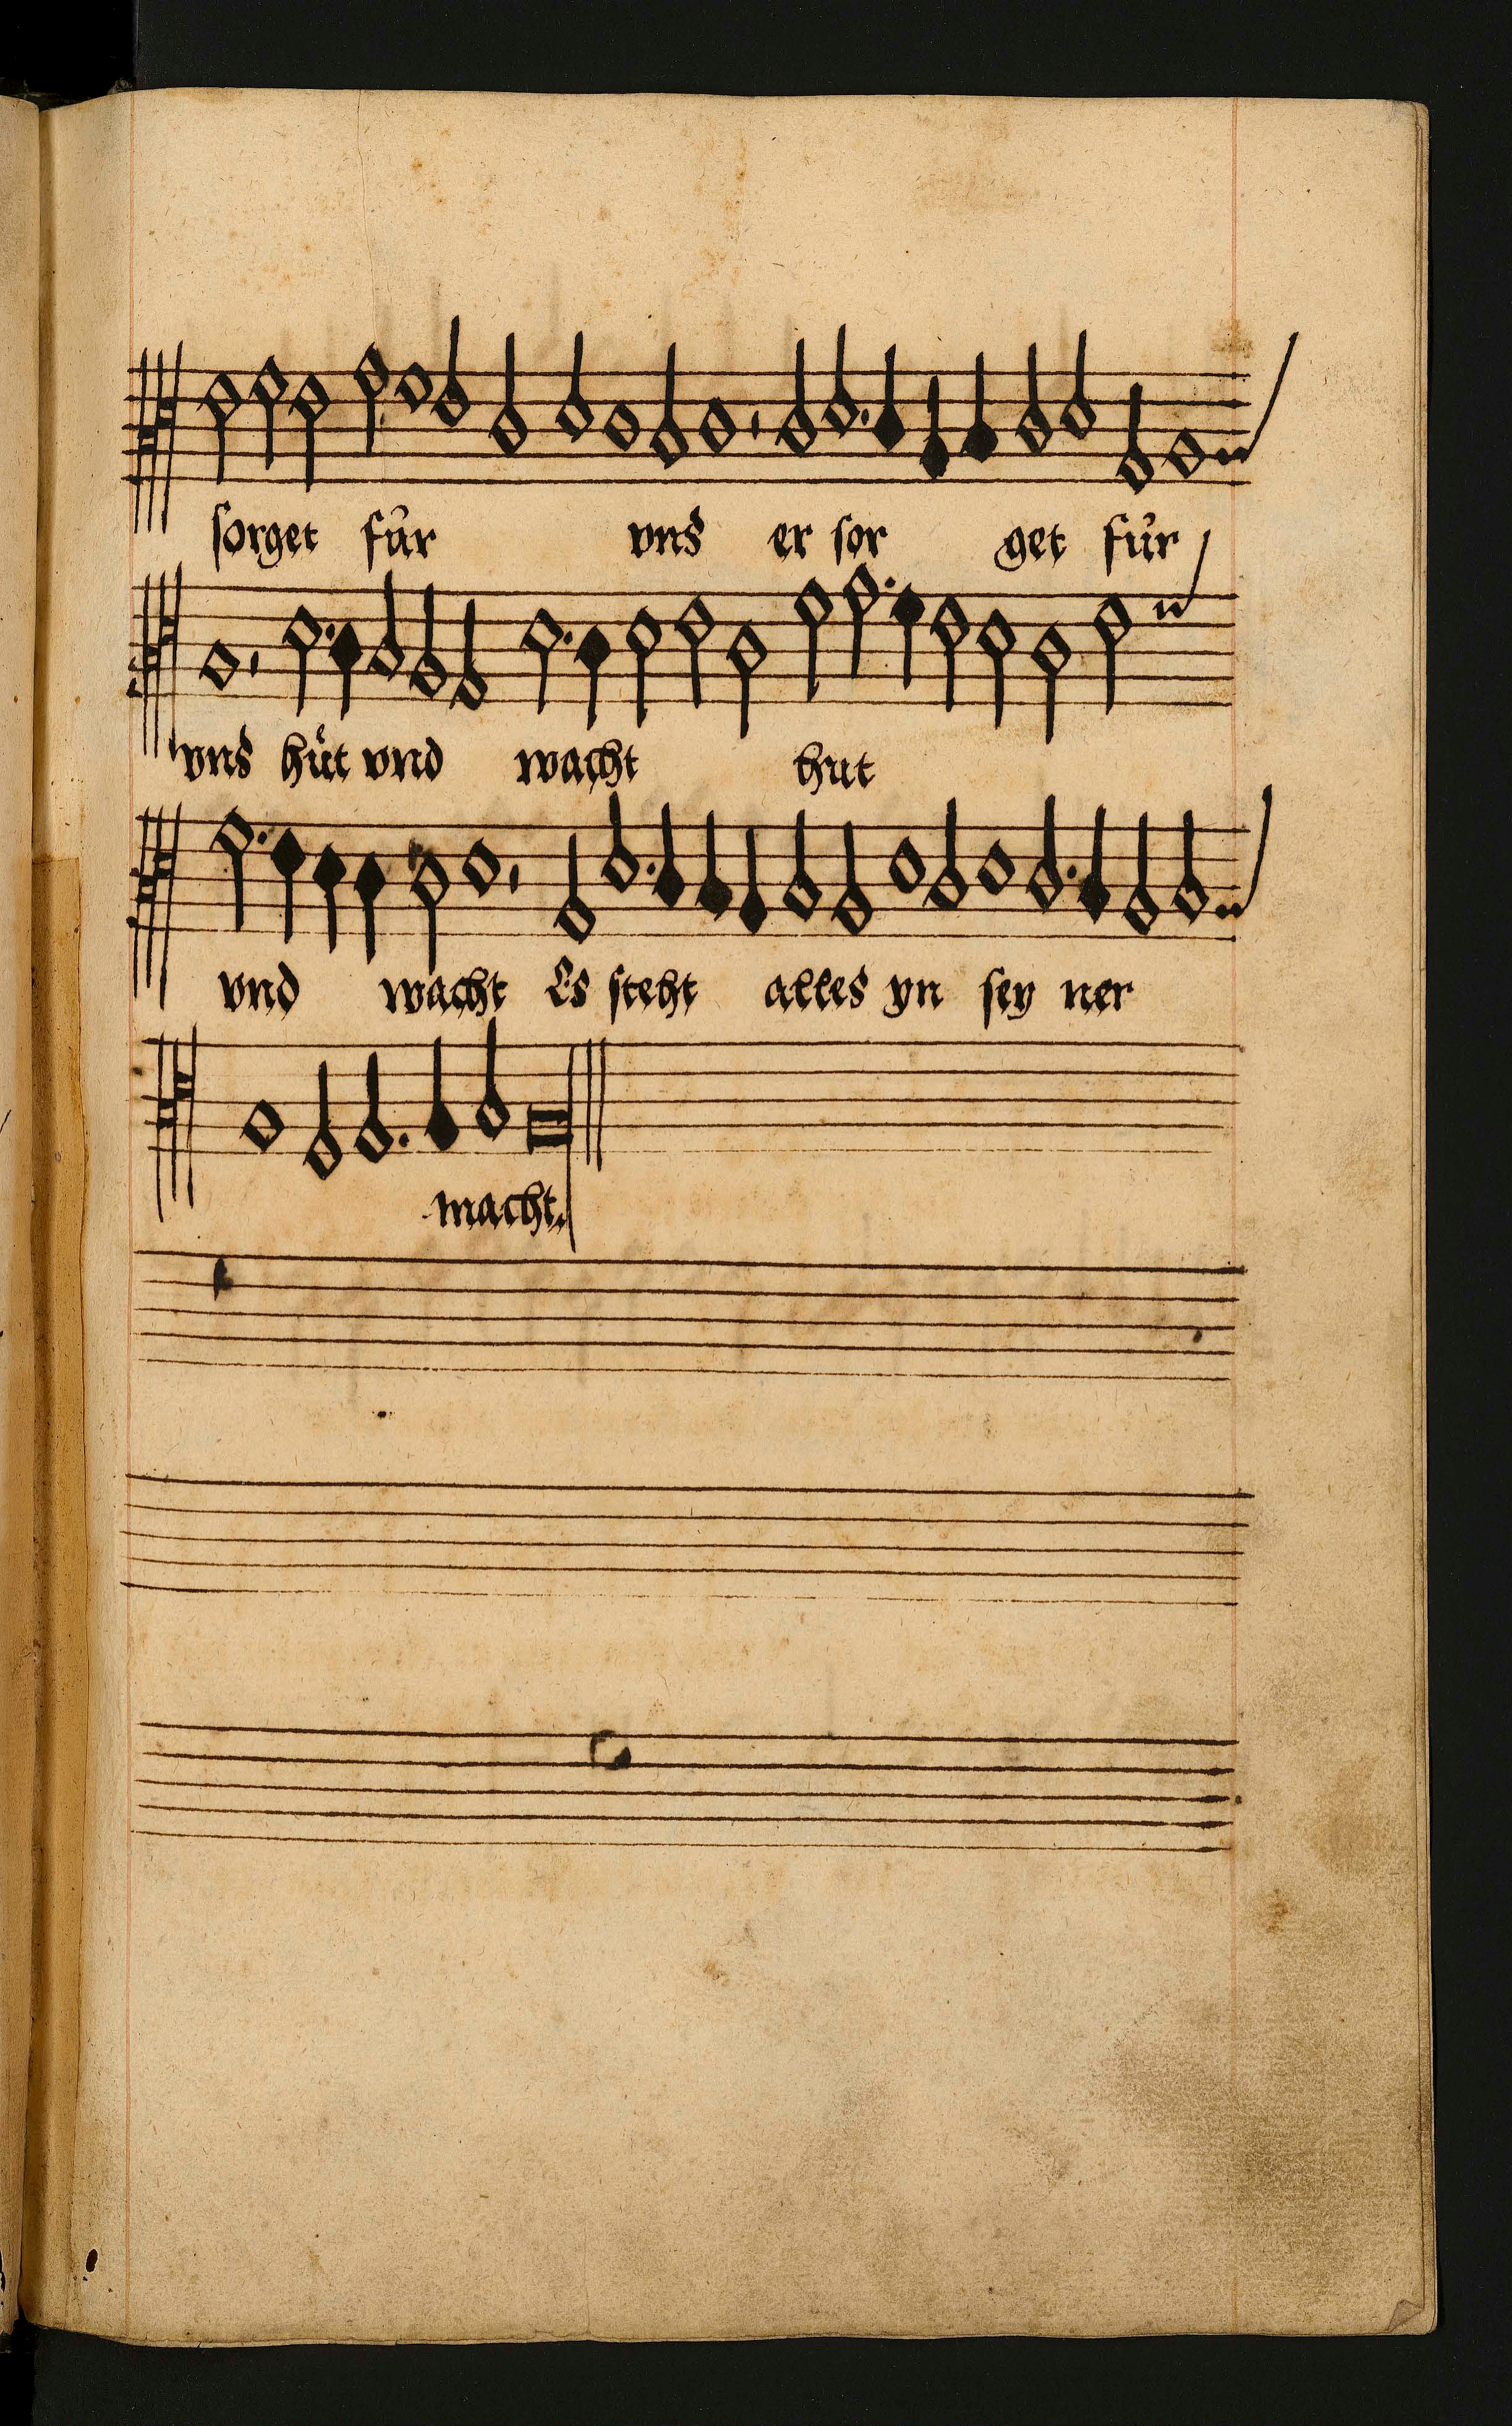 sorget für vns er sor get für
vns hüt vnd wacht hut
vnd wacht Es steht alles yn sey ner
macht.